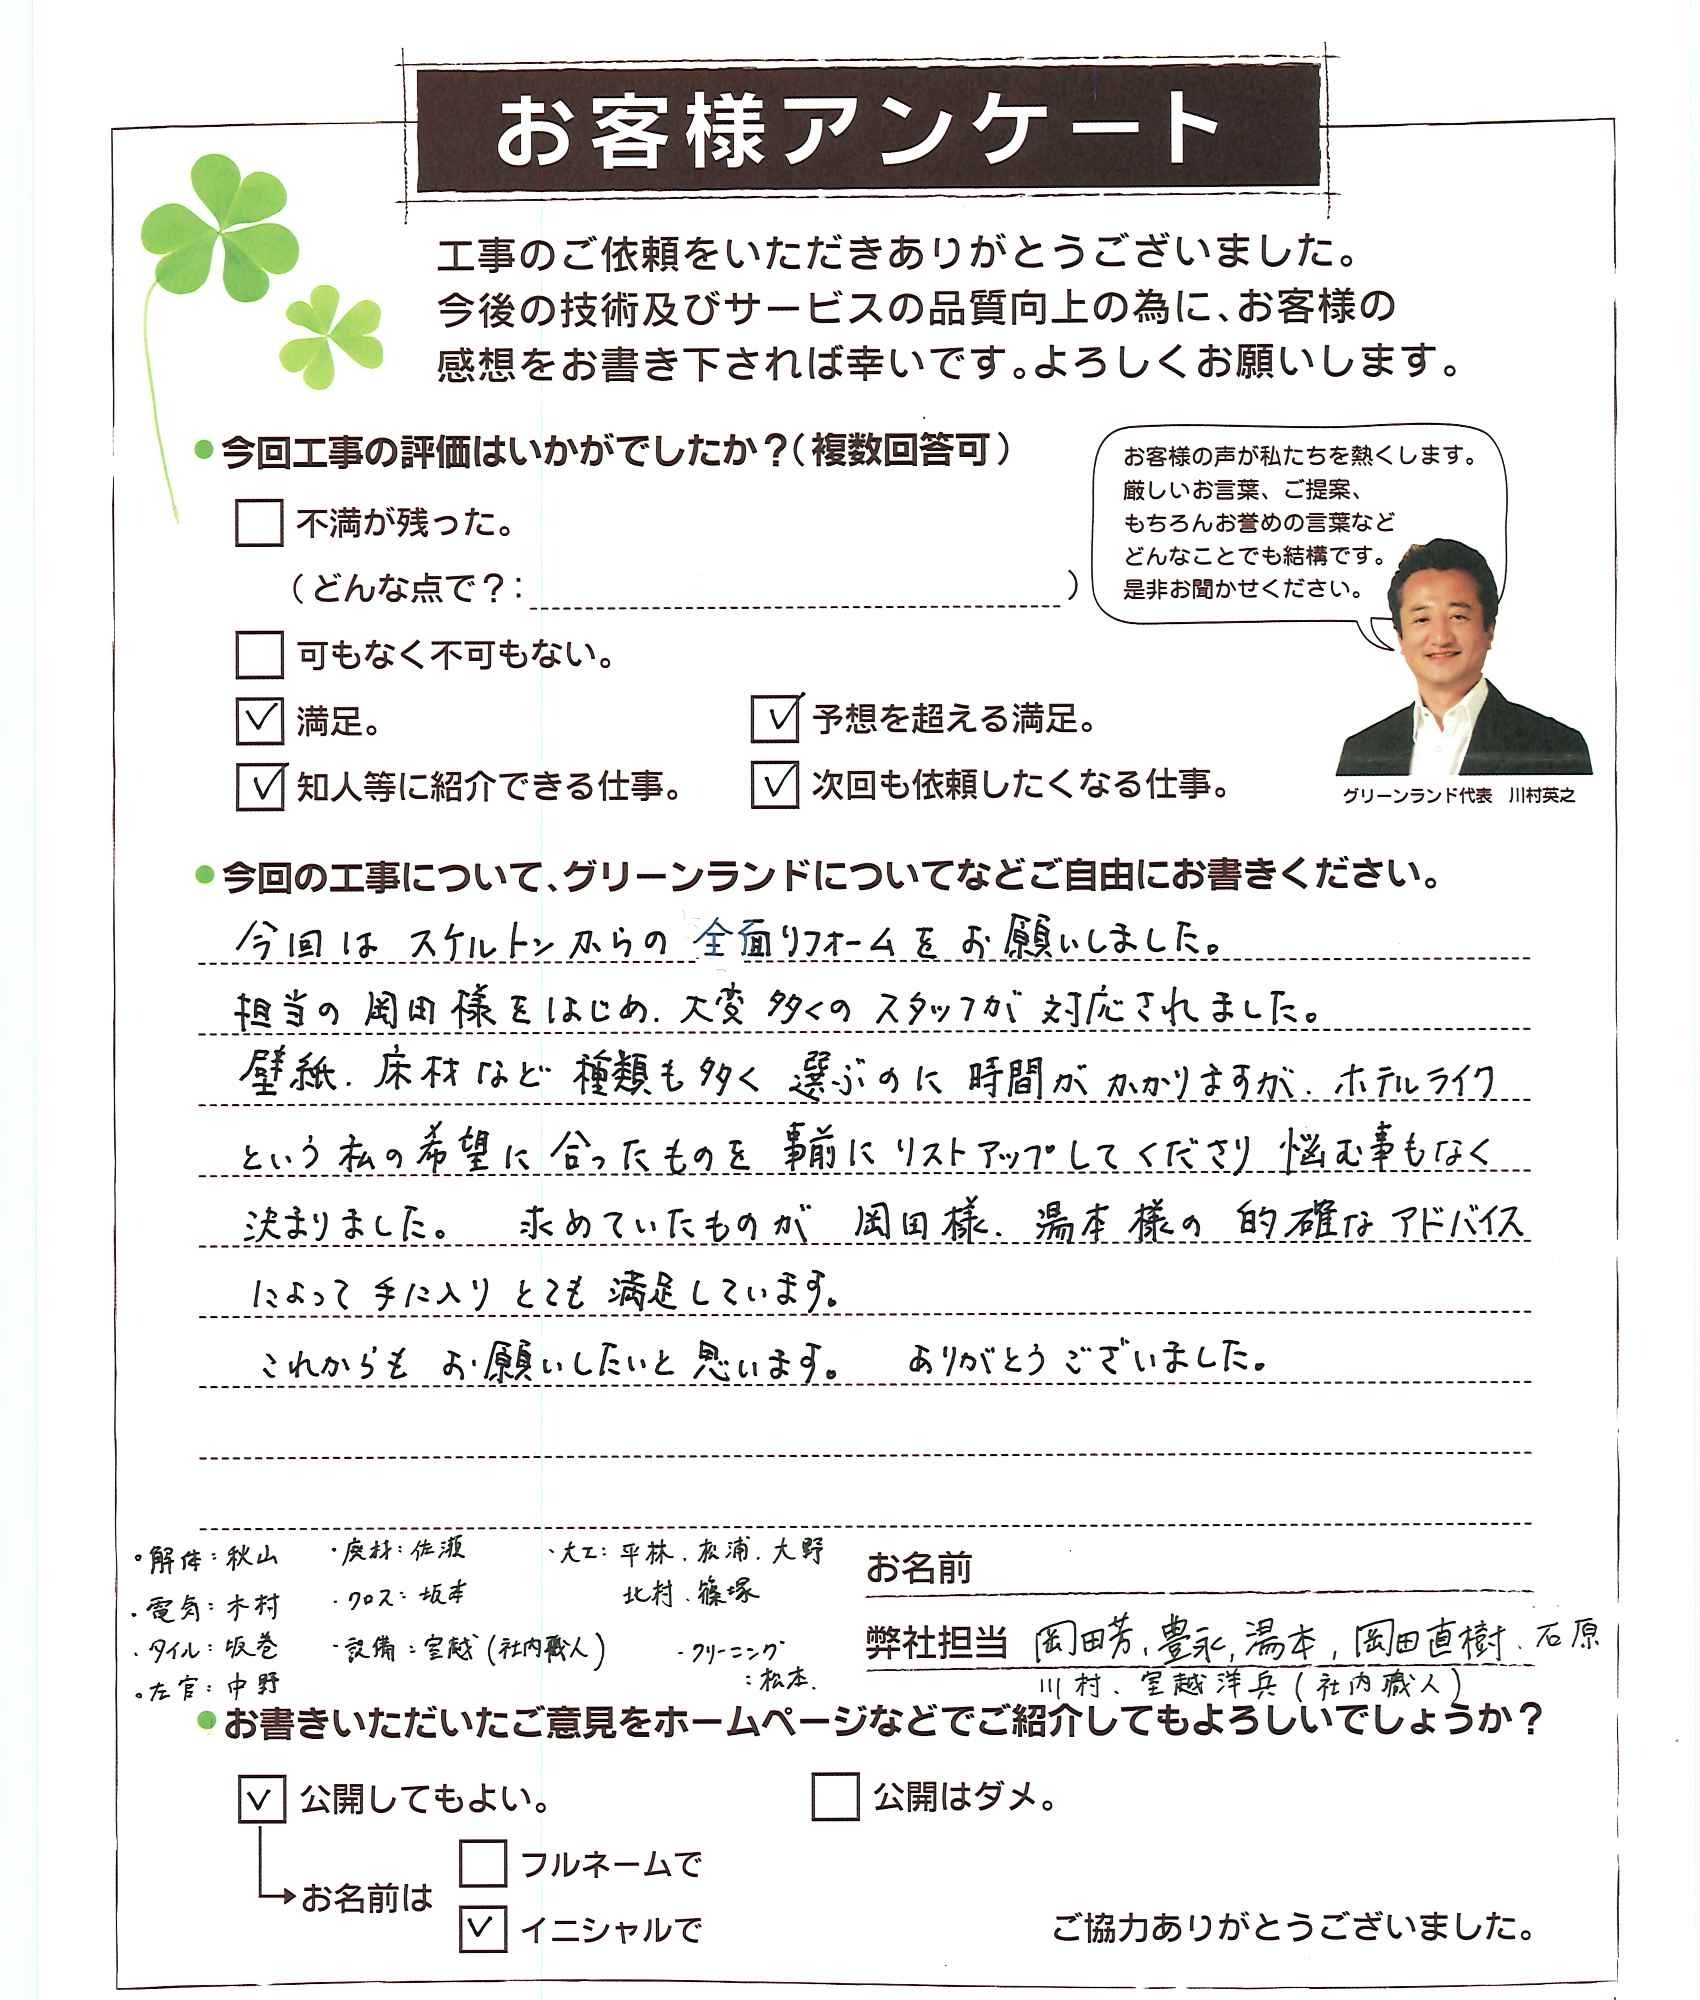 お客様アンケート
工事のご依頼をいただきありがとうございました。
今後の技術及びサービスの品質向上の為に、お客様の
感想をお書き下されば幸いです。よろしくお願いします。
●今回工事の評価はいかがでしたか？（複数回答可）
不満が残った。
（どんな点で？：　）
可もなく不可もない。
満足。
予想を超える満足。
知人等に紹介できる仕事。
次回も依頼したくなる仕事。
お客様の声が私たちを熱くします。
厳しいお言葉、ご提案、
もちろんお誉めの言葉など
どんなことでも結構です。
是非お聞かせください。
グリーンランド代表　川村英之
●今回の工事について、グリーンランドについてなどご自由にお書きください。
今回は スケルトンからの 全面リフォームを お願いしました。
担当の 岡田様をはじめ、大変 多くの スタッフが 対応されました。
壁紙、床材など 種類も多く 選ぶのに 時間が かかりますが、ホテルライク
という 私の希望に 合ったものを 事前に リストアップしてくださり 悩む事もなく
決まりました。 求めていたものが 岡田様、湯本様の 的確な アドバイス
によって 手に入り とても 満足しています。
これからも お願いしたいと 思います。 ありがとうございました。
・解体：秋山 ・廃材：佐瀬 ・大工：平林、松浦、大野
北村、篠塚
・電気：木村 ・クロス：坂本
・タイル：坂巻 ・設備：室越（社内職人） ・クリーニング
：松本.
・左官：中野
お名前
弊社担当 岡田芳、豊永、湯本、岡田直樹、石原
川村、室越洋兵（社内職人）
●お書きいただいたご意見をホームページなどでご紹介してもよろしいでしょうか？
公開してもよい。
公開はダメ。
お名前は
フルネームで
イニシャルで
ご協力ありがとうございました。